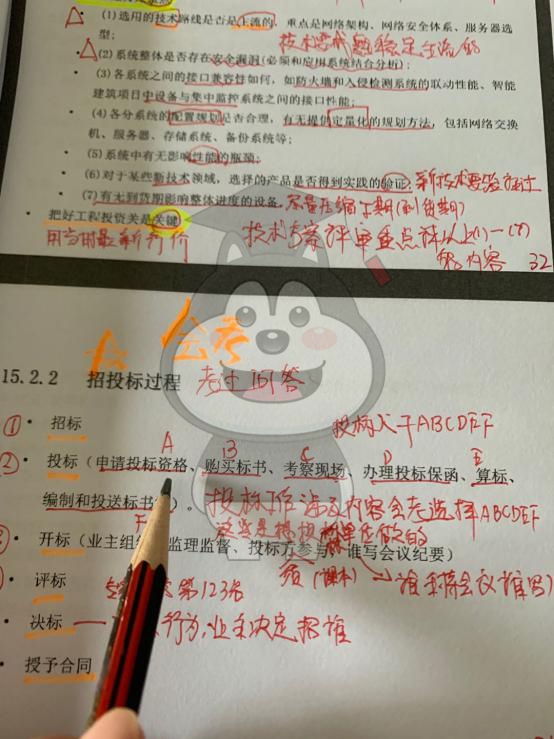 (1) 选用的技术路线是否是主流的，重点是网络架构、网络安全体系、服务器选
型；
(2)系统整体是否存在安全漏洞(必须和应用系统结合分析)；
(3)各系统之间的接口兼容性如何，如防火墙和入侵检测系统的联动性能、智能
建筑项目中设备与集中监控系统之间的接口性能；
(4)各分系统的配置规划是否合理，有无提供定量化的规划方法，包括网络交换
机、服务器、存储系统、备份系统等；
(5)系统中有无影响性能的瓶颈；
(6)对于某些新技术领域，选择的产品是否得到实践的验证；
(7)有无到货期影响整体进度的设备。尽量压缩工期(到货期)
• 把好工程投资关是关键
用当时最新行价
技术方案评审重点评以上(1)-(7)
内容 32
会考
15.2.2 招投标过程 考过问答
① • 招标 投标人干ABCDEF
A B C D E
② • 投标（申请投标资格、购买标书、考察现场、办理投标保函、算标、
编制和投送标书）。投标作 内容会考选择ABCDEF
F 这些是投标单位做的
• 开标（业主组 监理监督、投标方参与 谁写会议纪要）
• 评标 第123名 (课本) → 谁主持会议谁写)
• 决标 — 行为,业主决定招谁
• 授予合同